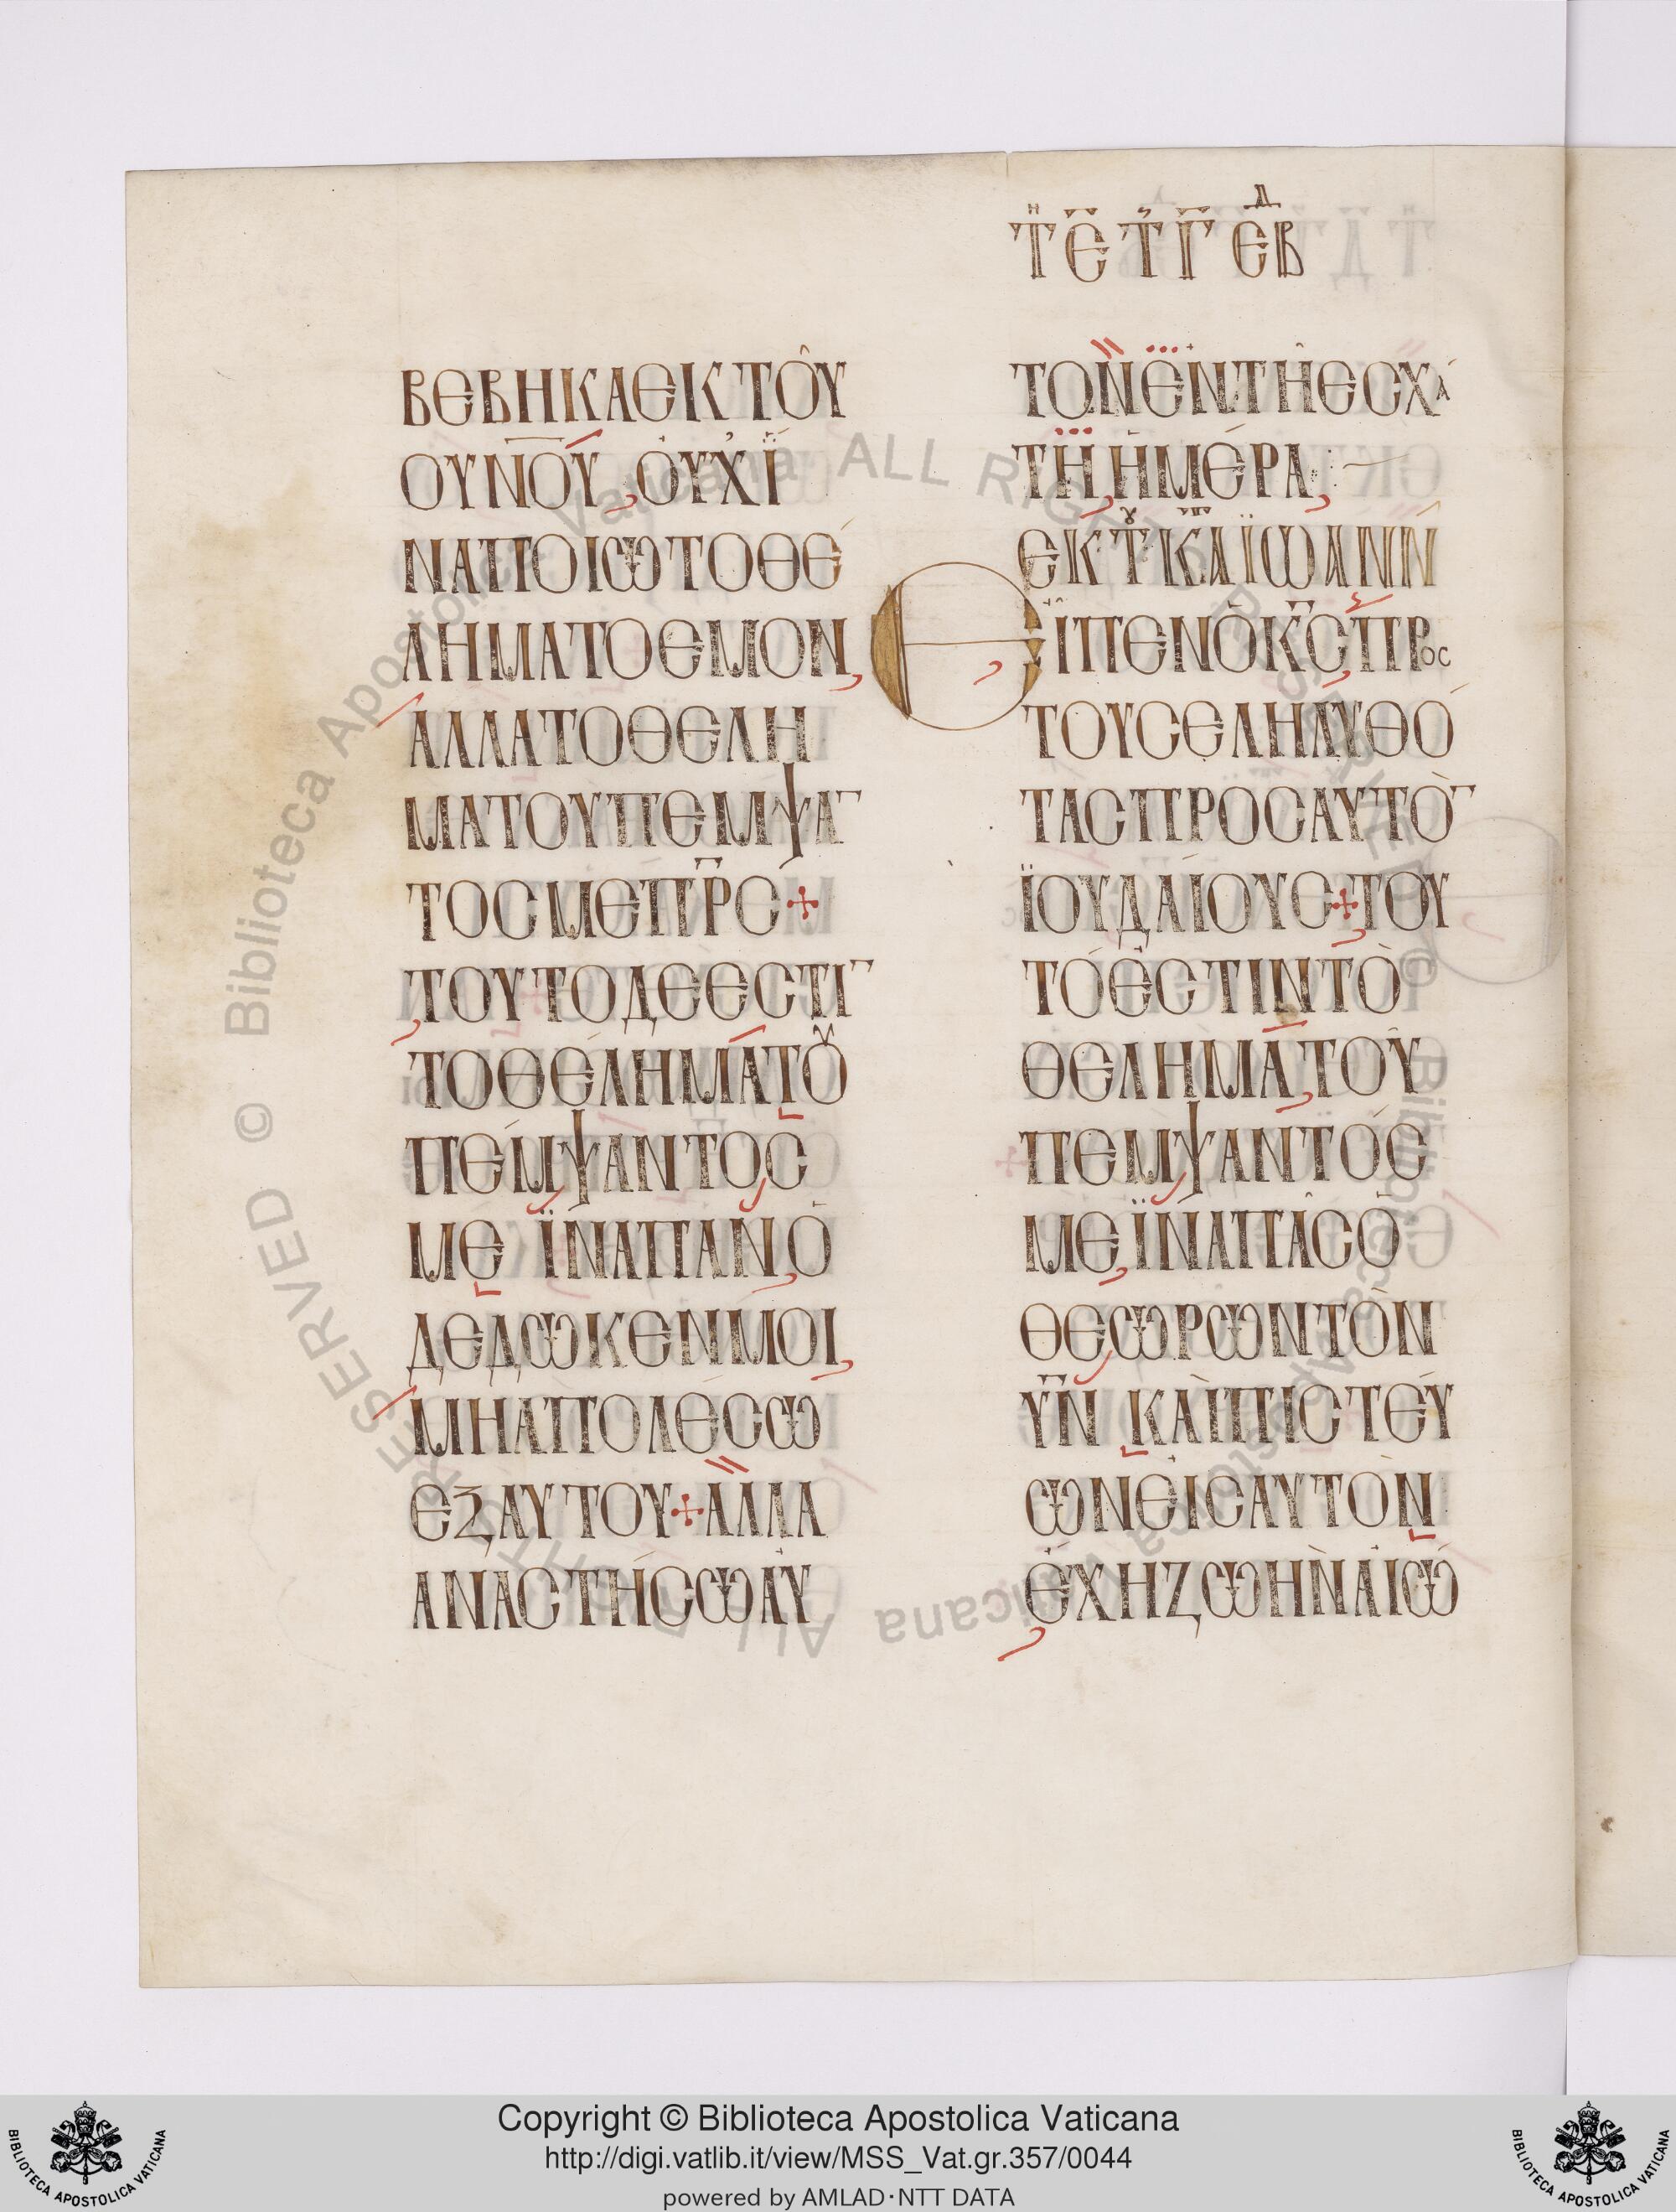 ΤΗ Ε ΤΗ Γ ΕΒΔ
ΒΕΒΗΚΑΕΚΤΟΥ
ΟΥΝΟΥ, ΟΥΧΪ
ΝΑΠΟΙΩΤΟΘΕ
ΛΗΜΑΤΟΕΜΟΝ,
ΑΛΛΑΤΟΘΕΛΗ
ΜΑΤΟΥΠΕΜΨΑ¯
ΤΟΣΜΕΠΡ̅Σ+
ΤΟΥΤΟΔΕΕΣΤΙ¯
ΤΟΘΕΛΗΜΑΤȢ
ΠΕΜΨΑΝΤΟΣ
ΜΕ ΪΝΑΠΑΝὉ
ΔΕΔΩΚΕΝΜΟΙ,
ΜΗΑΠΟΛΕΣΩ
ΕΞΑΥΤΟΥ+ΑΛΛΑ
ΑΝΑΣΤΗΣΩΑΥ
ΤΟΝΕΝΤΗΕΣΧΑ
ΤΗ,ΗΜΕΡΑ,:—
ΕΚΤȢΚΑΪΩΑΝΝ
ΕΙΠΕΝΟΚ̅Σ̅,ΠΡΟΣ
ΤΟΥΣΕΛΗΛΥΘΟ
ΤΑΣΠΡΟΣΑΥΤΟ¯
ΪΟΥΔΑΙΟΥΣ+ΤΟΥ
ΤΟΕΣΤΙΝΤΟ
ΘΕΛΗΜΑ,ΤΟΥ
ΠΕΜΨΑΝΤΟΣ
ΜΕ,ΪΝΑΠΑΣΟ
ΘΕΩΡΩΝΤΟΝ
Υ̅Ν̅ ΚΑΙΠΙΣΤΕΥ
ΩΝΕΙΣΑΥΤΟΝ
ΕΧΗΖΩΗΝΑΙΩ
Copyright © Biblioteca Apostolica Vaticana
http://digi.vatlib.it/view/MSS_Vat.gr.357/0044
powered by AMLAD·NTT DATA
BIBLIOTECA APOSTOLICA VATICANA
BIBLIOTECA APOSTOLICA VATICANA
© Biblioteca Apostolica Vaticana ALL RIGHTS RESERVED